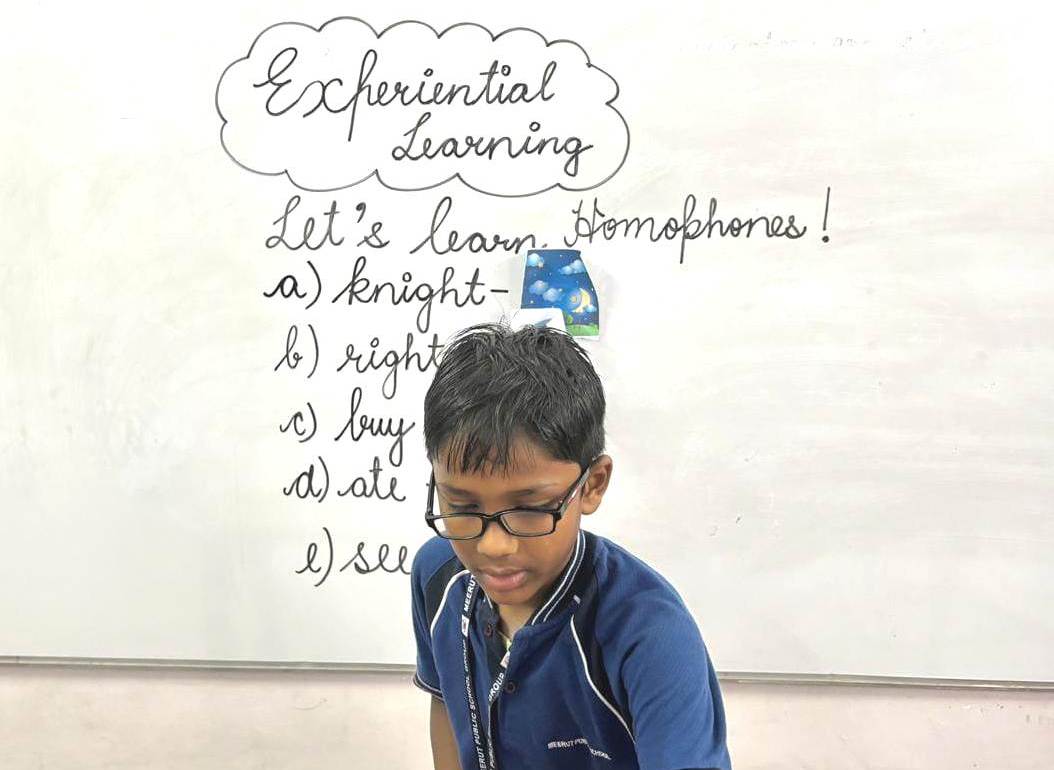 Experiential
Learning
Let's learn Homophones!
a) knight-
b) right
c) buy
d) ate
e) see
MEERUT
MEERUT PUBLIC SCHOOL GROUP
GROUP
MEERUT PUBLIC SCHOOL